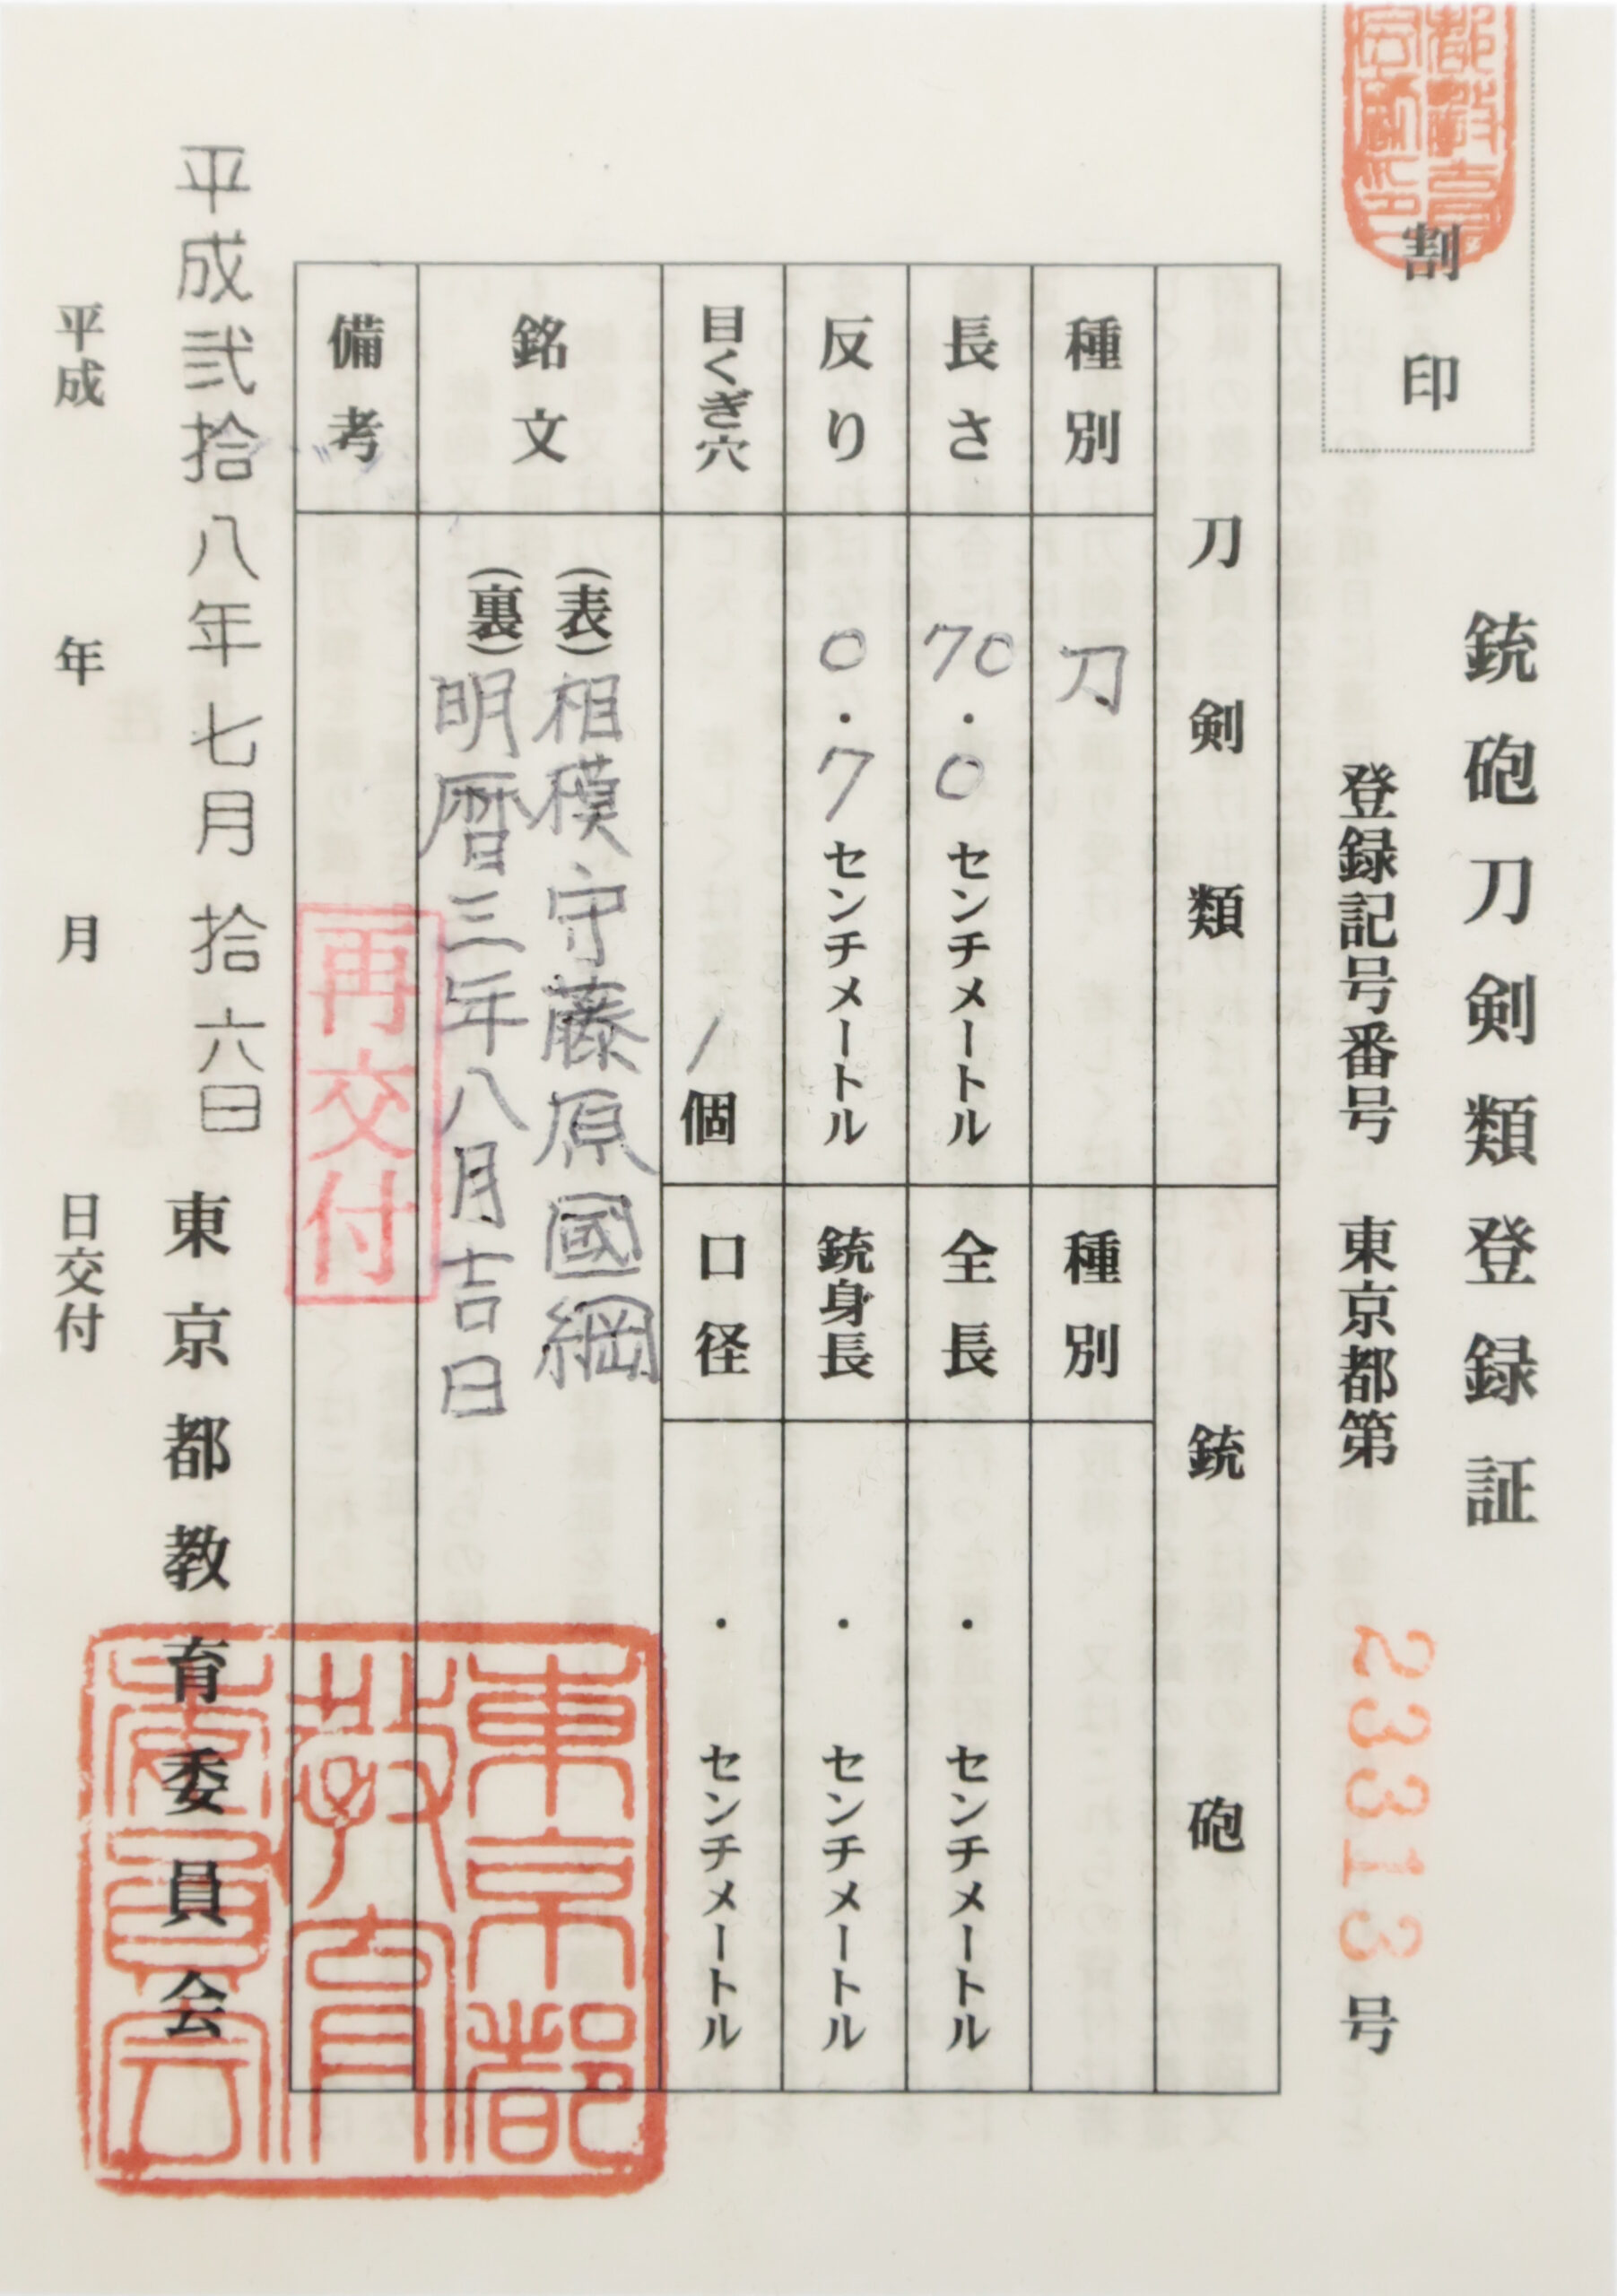 割印
都教育
会割印
銃砲刀剣類登録証
登録記号番号 東京都第23313号
刀剣類
銃砲
種別
刀
種別
長さ
70.0センチメートル
全長
・センチメートル
反り
0.7センチメートル
銃身長
・センチメートル
目くぎ穴
1個
口径
・センチメートル
銘文
(表)相模守藤原國綱
(裏)明暦三年八月吉日
備考
再交付
平成弐拾八年七月拾六日
東京都教育委員会
東京都
教育
委員会
平成 年 月 日交付